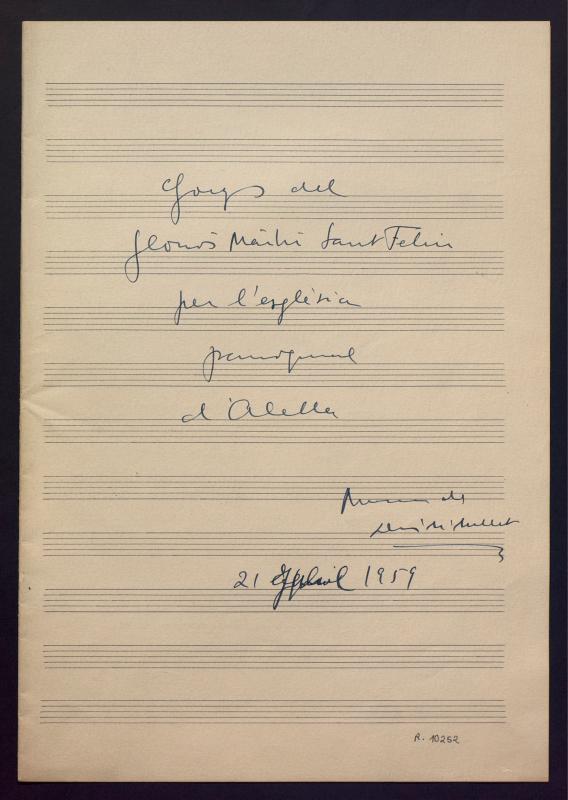 Goigs del
gloriós Màrtir Sant Feliu
per l'església
parroquial
d'Alella
Música de
Lluís Mª Millet
21 1959
R. 10252